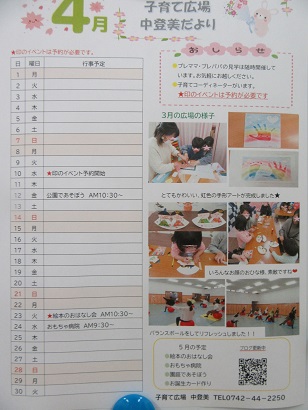 4月
子育て広場
中登美だより
★印のイベントは予約が必要です。
日 曜日 行事予定
1 月
2 火
3 水
4 木
5 金
6 土
7 日
8 月
9 火
10 水 ★印のイベント予約開始
11 木
12 金 公園であそぼう AM10:30～
13 土
14 日
15 月
16 火
17 水
18 木
19 金
20 土
21 日
22 月
23 火 ★絵本のおはなし会 AM10:30～
24 水 おもちゃ病院 AM9:30～
25 木
26 金
27 土
28 日
29 月
30 火
おしらせ
プレママ・プレパパの見学は随時開催して
います。お気軽にお越しください。
子育てコーディネーターがいます。
★印のイベントは予約が必要です
3月の広場の様子
とてもかわいい、虹色の手形アートが完成しました★
いろんなお顔のおひな様、素敵ですね♥
バランスボールをしてリフレッシュしました！！
5月の予定
★絵本のおはなし会
★おもちゃ病院
★園庭であそぼう
★お誕生カード作り
ブログ更新中
子育て広場 中登美 TEL0742-44-2250